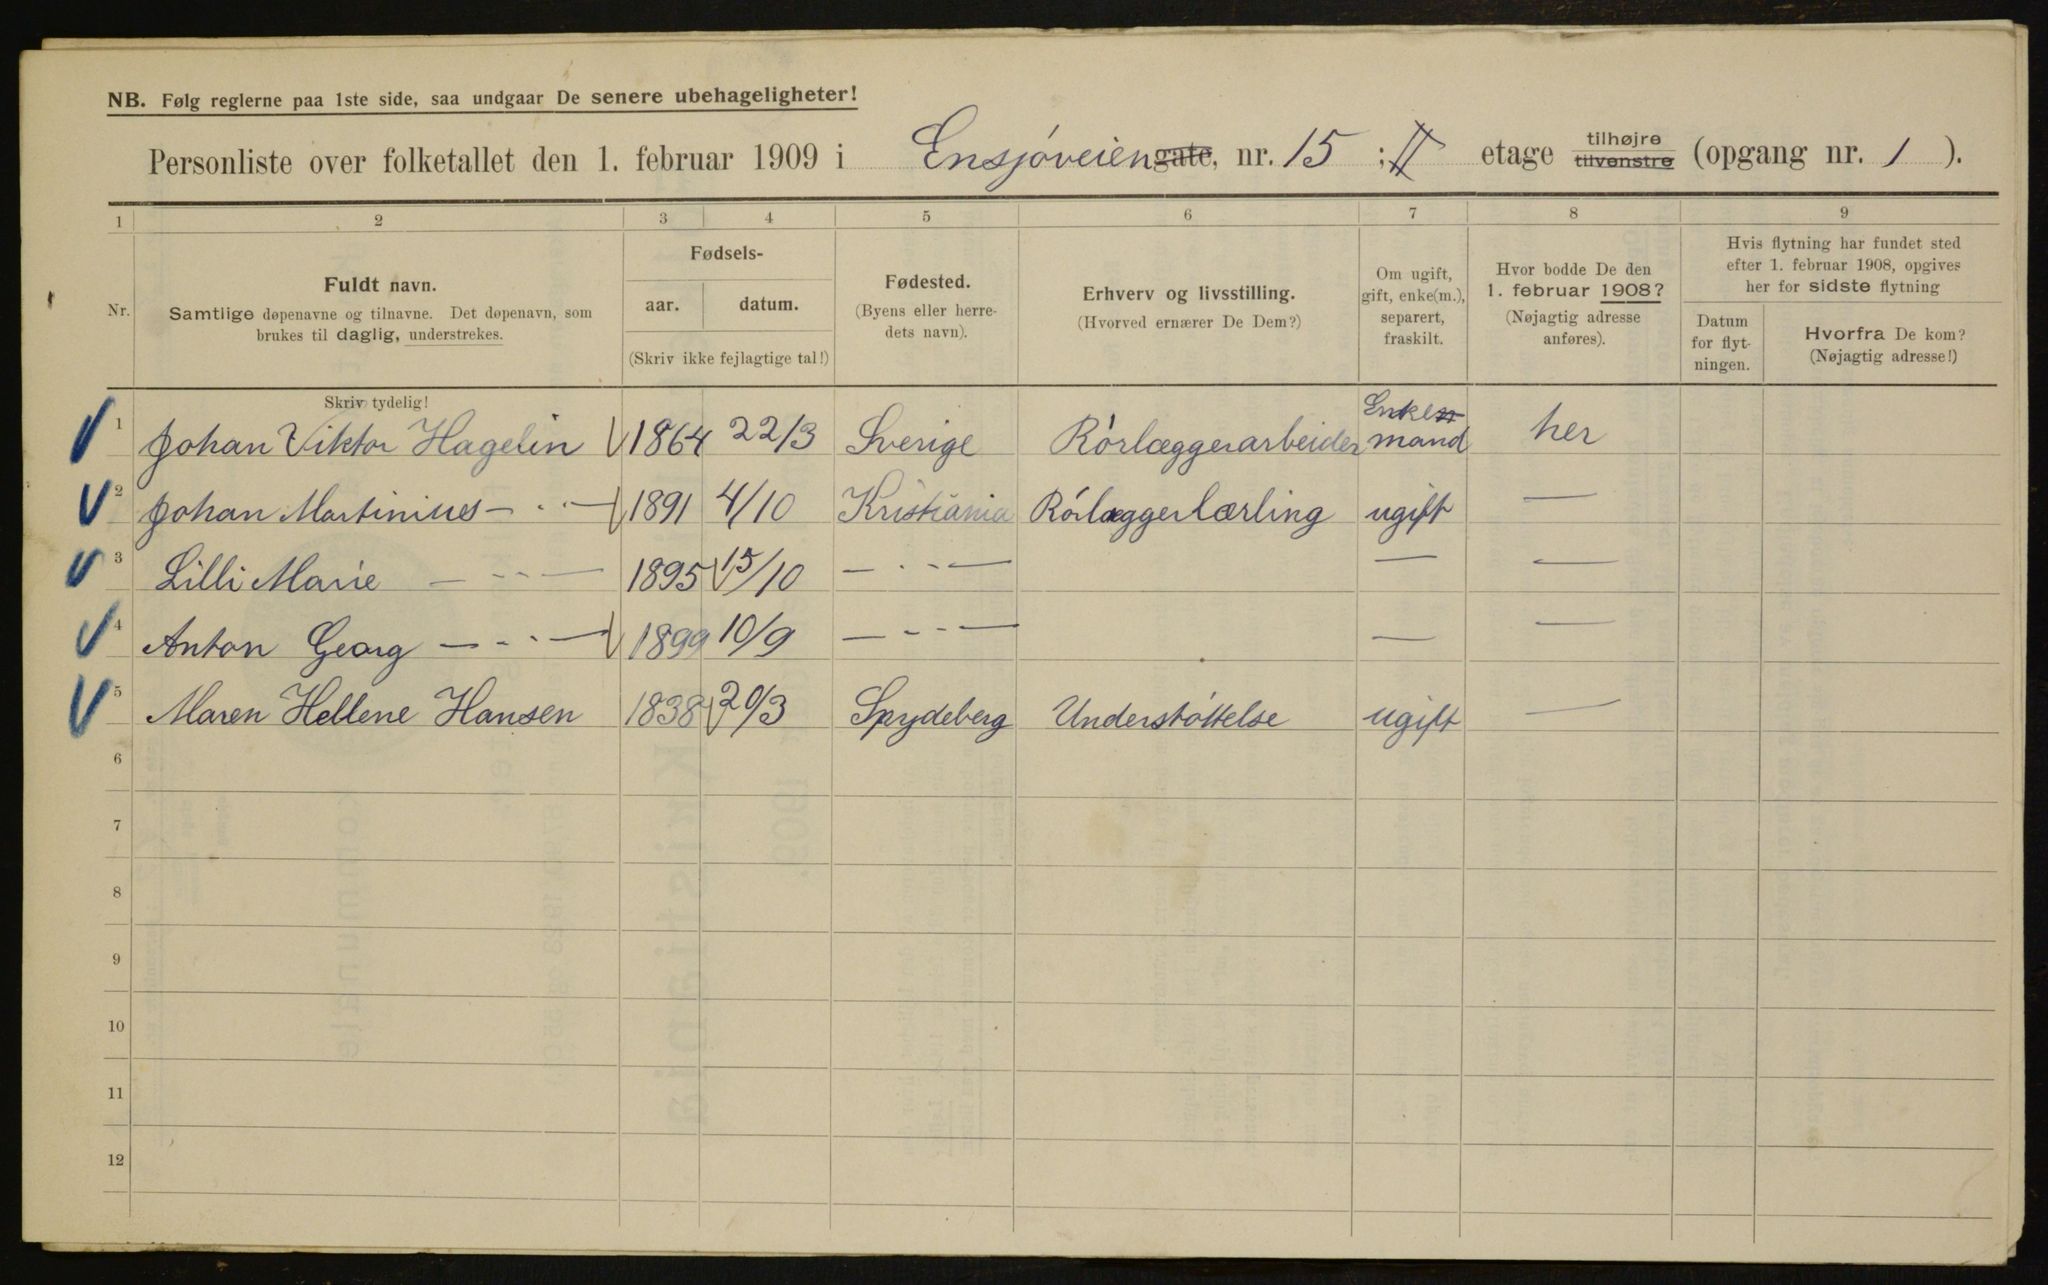 NB. Følg reglerne paa 1ste side, saa undgaar De senere ubehageligheter!
Personliste over folketallet den 1. februar 1909 i Ensjøveien gate, nr. 15 ; II etage tilhøjre tilvenstre (opgang nr. 1 ).
1 2 3 4 5 6 7 8 9
Nr. Fuldt navn. Samtlige døpenavne og tilnavne. Det døpenavn, som brukes til daglig, understrekes.
Fødsels-
aar. datum.
(Skriv ikke fejlagtige tal!)
Fødested. (Byens eller herredets navn).
Erhverv og livsstilling. (Hvorved ernærer De Dem?)
Om ugift, gift, enke(m.), separert, fraskilt.
Hvor bodde De den 1. februar 1908? (Nøjagtig adresse anføres).
Hvis flytning har fundet sted efter 1. februar 1908, opgives her for sidste flytning
Datum for flytningen.
Hvorfra De kom? (Nøjagtig adresse!)
Skriv tydelig!
1 Johan Viktor Hagelin 1864 22/3 Sverige Rörlæggerarbeider Enkemand her
2 Johan Martinius — " — 1891 4/10 Kristiania Rörlæggerlærling ugift —
3 Lilli Marie — " — 1895 15/10 — " — — —
4 Anton Georg — " — 1899 10/9 — " — — —
5 Maren Hellene Hansen 1838 20/3 Spydeberg Understöttelse ugift —
6
7
8
9
10
11
12